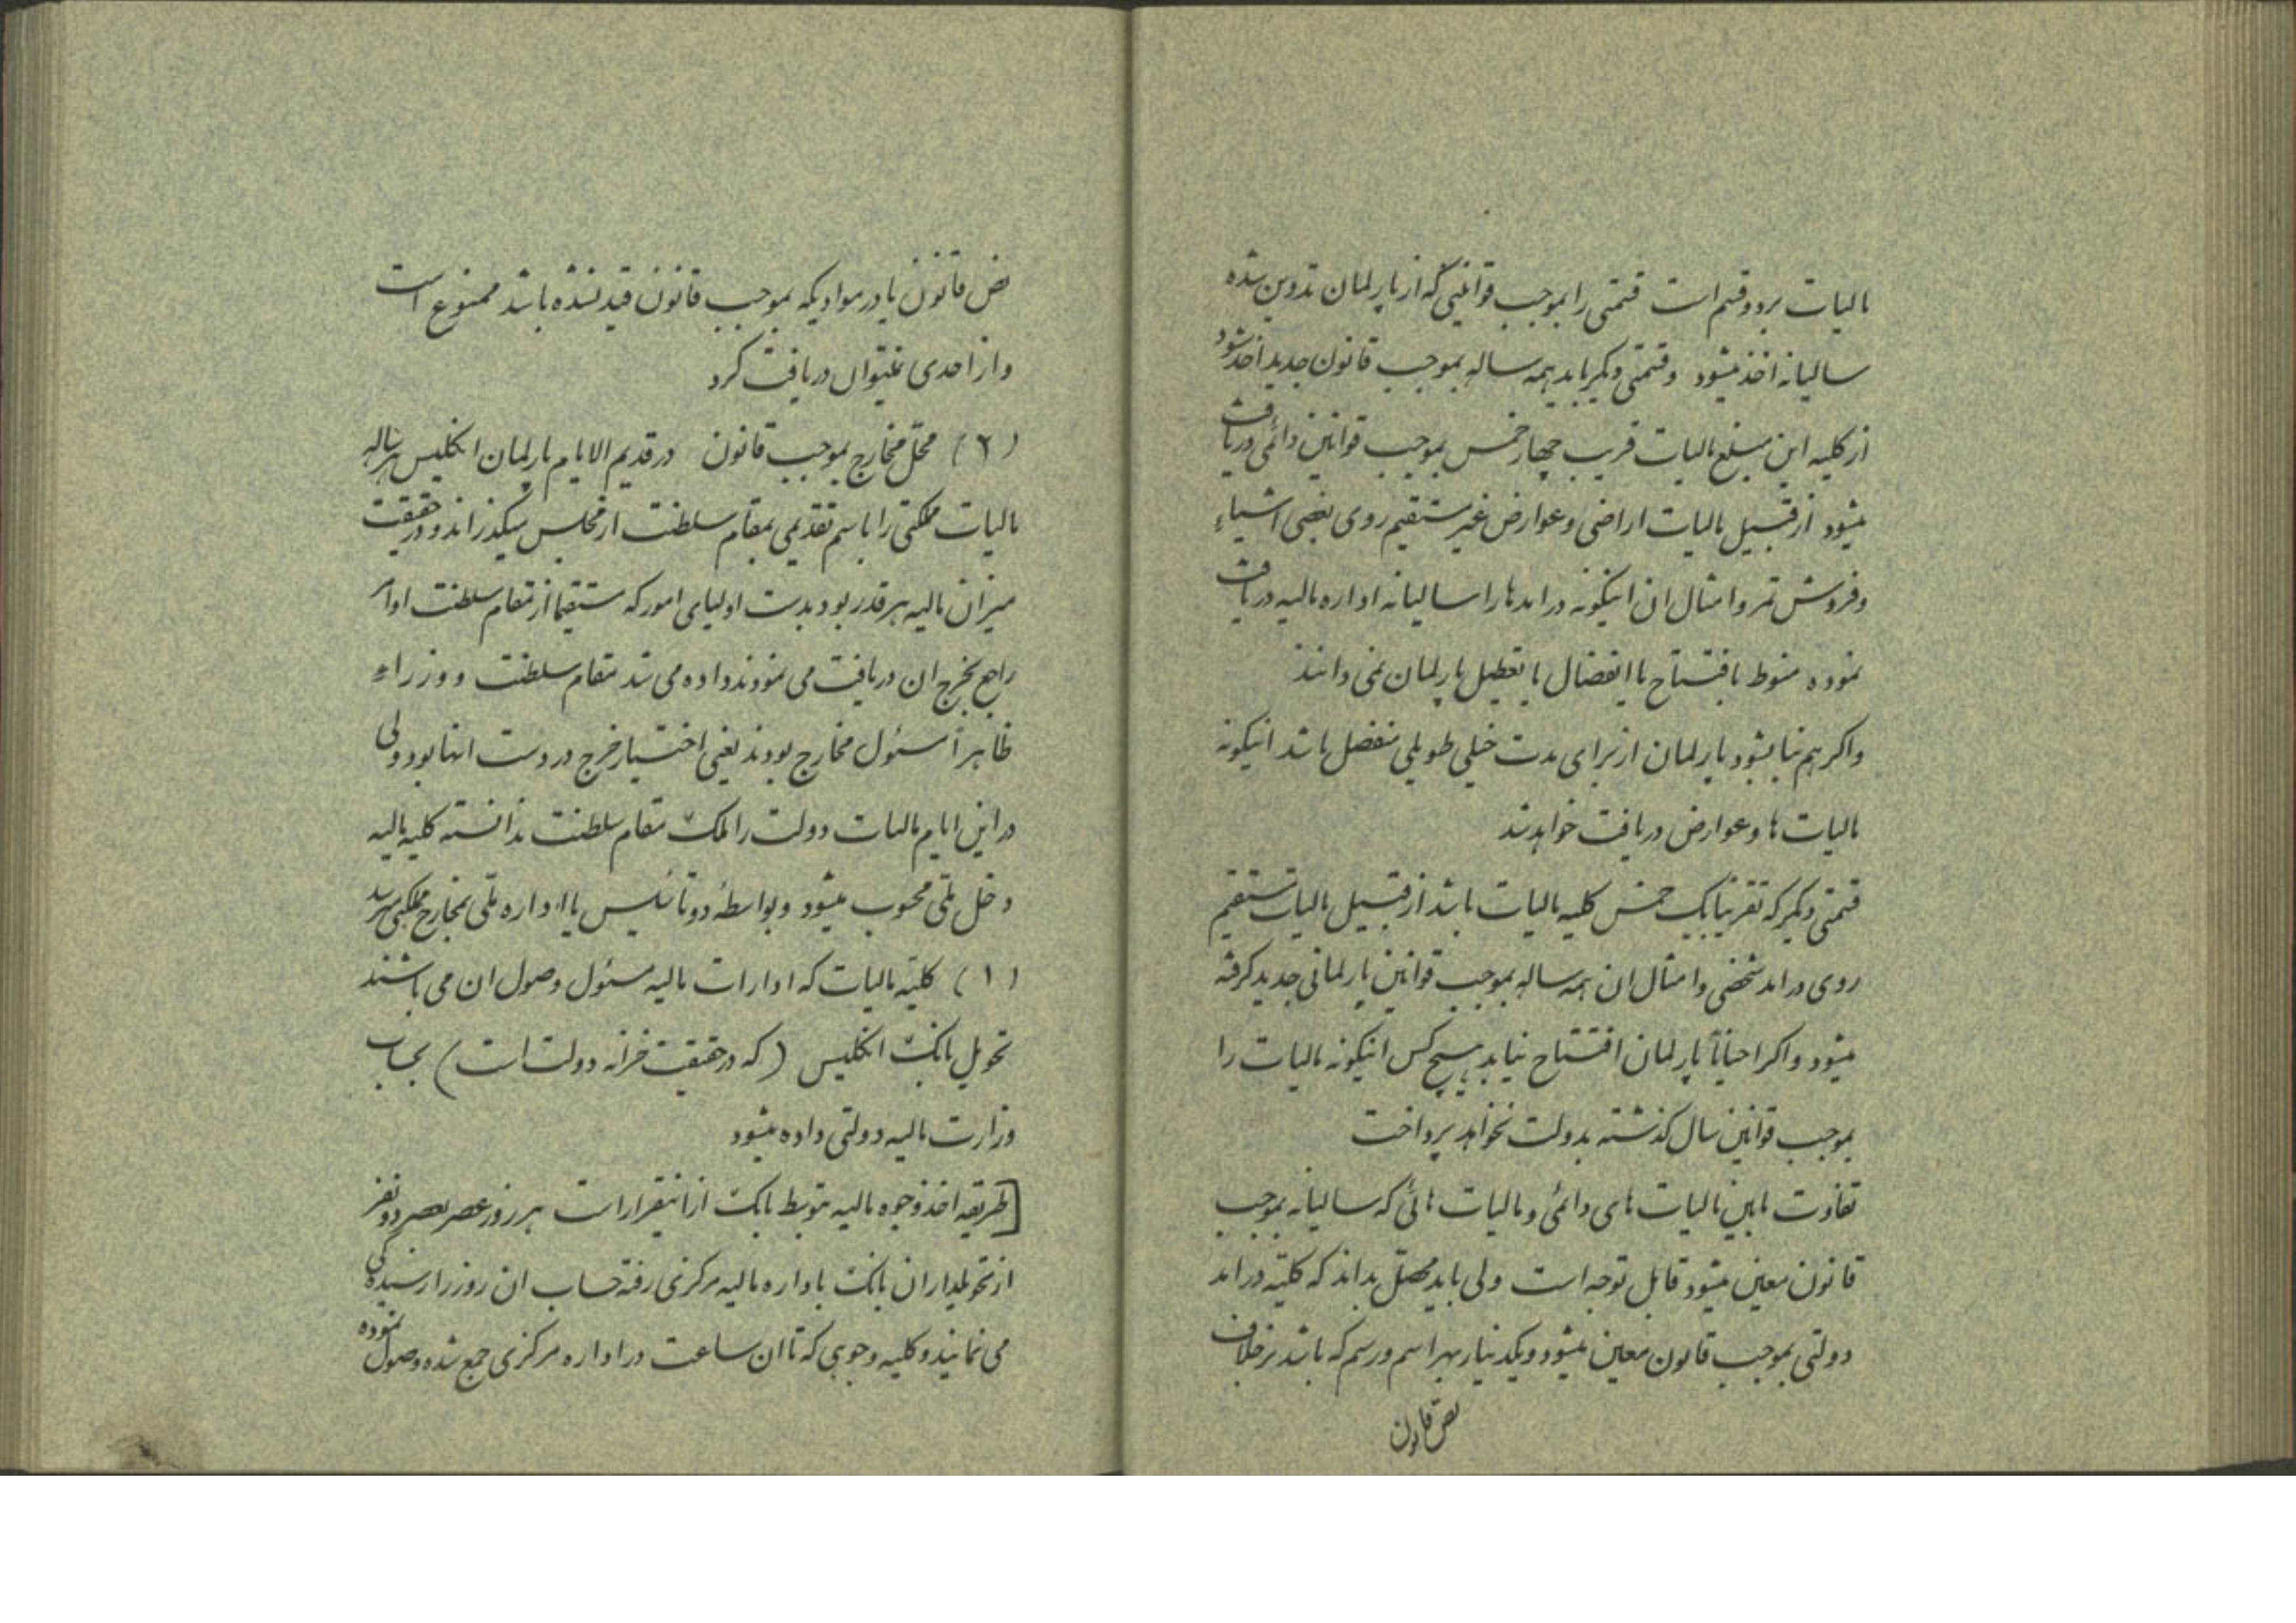 مالیات بر دو قسم است قسمتی را بموجب قوانینی که از پارلمان تدوین شده
سالیانه اخذ میشود وقسمتی دیگر باید همه ساله بموجب قانون جدید اخذ شود
از کلیه این مبلغ مالیات قریب چهار خمس بموجب قوانین دائمی دریافت
میشود از قبیل مالیات اراضی وعوارض غیر مستقیم روی بعضی اشیاء
وفروش تمر وامثال ان اینگونه درامدها را سالیانه اداره مالیه دریافت
نموده منوط بافتتاح یا انفصال یا تعطیل پارلمان نمی دانند
واکر هم بنا بشود پارلمان از برای مدت خیلی طویلی منفصل باشد اینگونه
مالیات ها وعوارض دریافت خواهد شد
قسمتی دیگر که تقریبا یک خمس کلیه مالیات باشد از قبیل مالیات مستقیم
روی درامد شخصی وامثال ان همه ساله بموجب قوانین پارلمانی جدید گرفته
میشود واکر احیاناً پارلمان افتتاح نیابد هیچ کس اینگونه مالیات را
بموجب قوانین سال گذشته بدولت نخواهد پرداخت
تفاوت مابین مالیات های دائمی ومالیات هائی که سالیانه بموجب
قانون معین میشود قابل توجه است ولی باید محصّل بداند که کلیّه درامد
دولتی بموجب قانون معین میشود ویکدینار بهر اسم ورسم که باشد بر خلاف
نص قانون
نص قانون یا در موادیکه بموجب قانون قید نشده باشد ممنوع است
واز احدی نمیتوان دریافت کرد
(۲) محّل مخارج بموجب قانون در قدیم الایام پارلمان انگلیس هر ساله
مالیات مملکتی را باسم تقدیمی بمقام سلطنت از مجلس میگذراند ودر حقیقت
میزان مالیه هر قدر بود بدست اولیای امور که مستقیما از مقام سلطنت اوامر
راجع بخرج ان دریافت می نمودند داده می شد مقام سلطنت و وزراء
ظاهراً مسئول مخارج بودند یعنی اختیار خرج در دست انها بود ولی
در این ایام مالیات دولت را ملک مقام سلطنت ندانسته کلیه مالیه
دخل ملّی محسوب میشود وبواسطهٔ دو تاسیس یا اداره ملّی بمخارج مملکتی میرسد
(۱) کلیّه مالیات که ادارات مالیه مسئول وصول ان می باشند
تحویل بانک انگلیس (که در حقیقت خزانه دولت است) بحساب
وزارت مالیه دولتی داده میشود
[طریقه اخذ وجوه مالیه بتوسط بانک از اینقرار است هر روز عصر بعصر دو نفر
از تحویلداران بانک باداره مالیه مرکزی رفته حساب ان روز را رسیده گی
می نمایند وکلیه وجوهی که تا ان ساعت در اداره مرکزی جمع شده وصول نموده